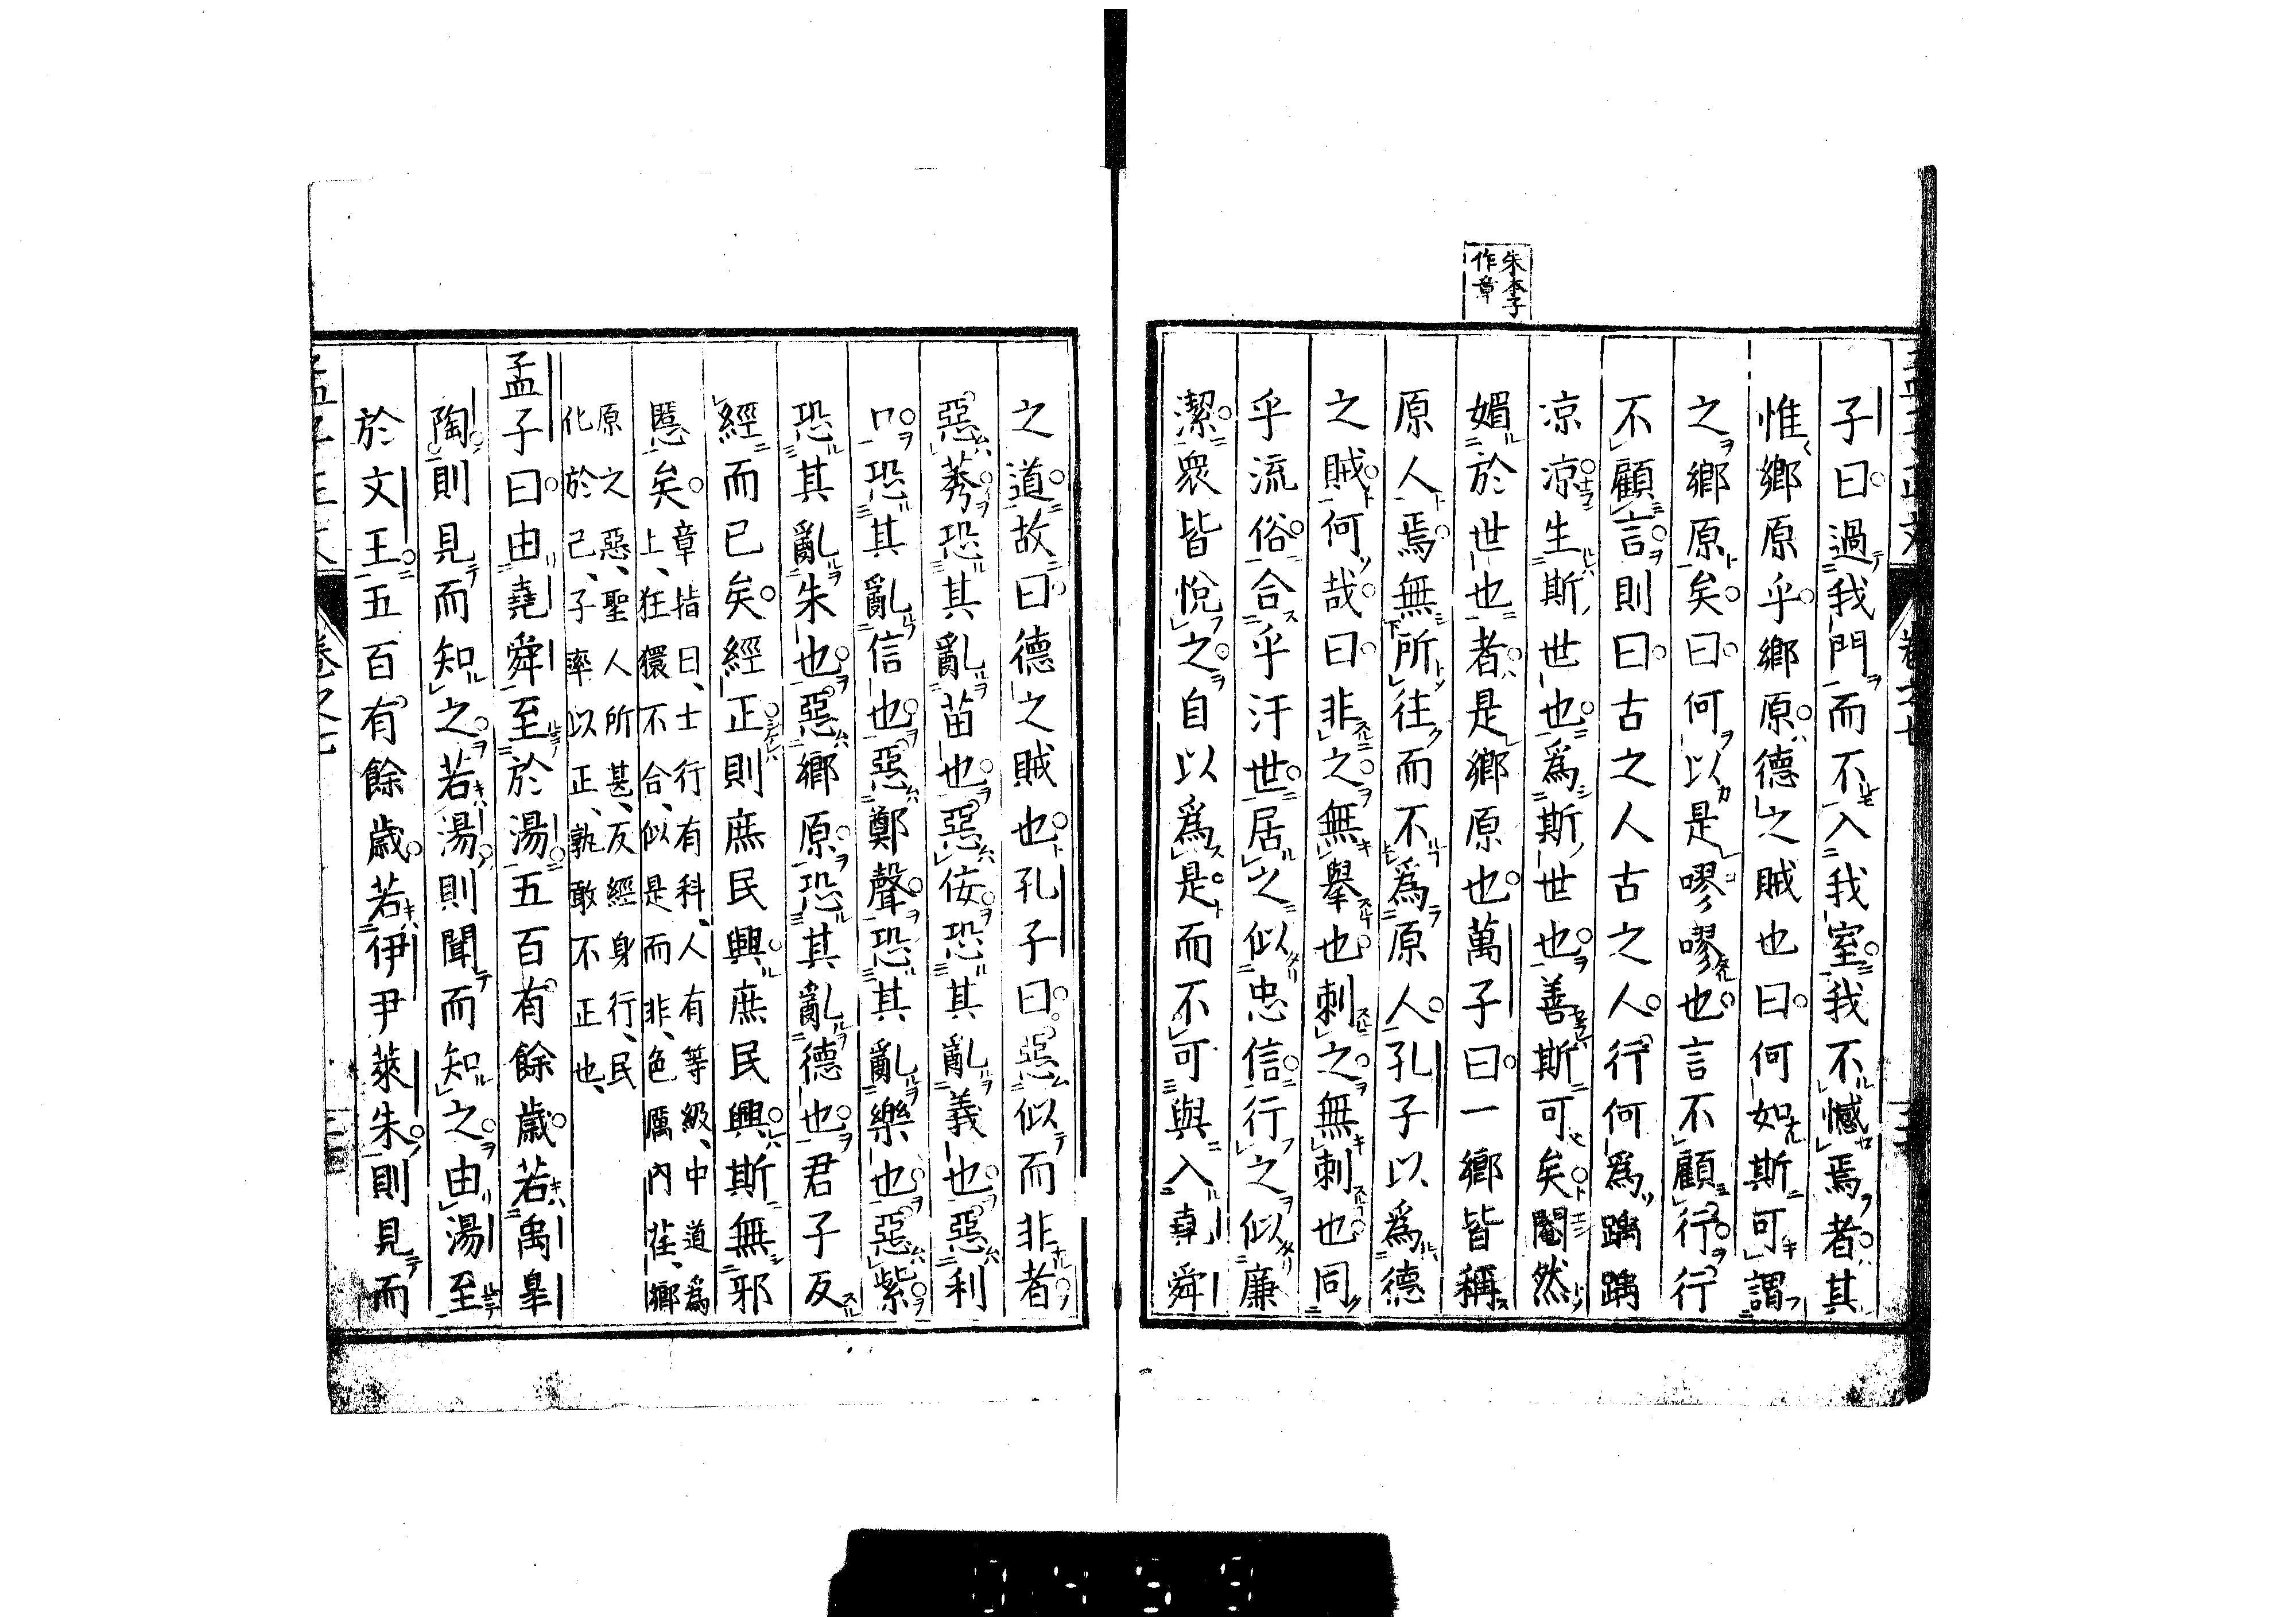 朱本子
作章
子曰過我門而不入我室我不憾焉者其
惟鄉原乎鄉原德之賊也曰何如斯可謂
之鄉原矣曰何以是嘐嘐也言不顧行行
不顧言則曰古之人古之人行何爲踽踽
凉凉生斯世也爲斯世也善斯可矣閹然
媚於世也者是鄉原也萬子曰一鄉皆稱
原人焉無所往而不爲原人孔子以爲德
之賊何哉曰非之無舉也刺之無刺也同
乎流俗合乎汙世居之似忠信行之似廉
潔衆皆悅之自以爲是而不可與入堯舜
之道故曰德之賊也孔子曰惡似而非者
惡莠恐其亂苗也惡佞恐其亂義也惡利
口恐其亂信也惡鄭聲恐其亂樂也惡紫
恐其亂朱也惡鄉原恐其亂德也君子反
經而已矣經正則庶民興庶民興斯無邪
慝矣
章指曰、士行有科、人有等級、中道爲
上、狂獧不合、似是而非、色厲內荏、鄉
原之惡、聖人所甚、反經身行、民
化於己、子率以正、孰敢不正也、
孟子曰由堯舜至於湯五百有餘歲若禹皐
陶則見而知之若湯則聞而知之由湯至
於文王五百有餘歲若伊尹萊朱則見而
孟子正文
卷之七